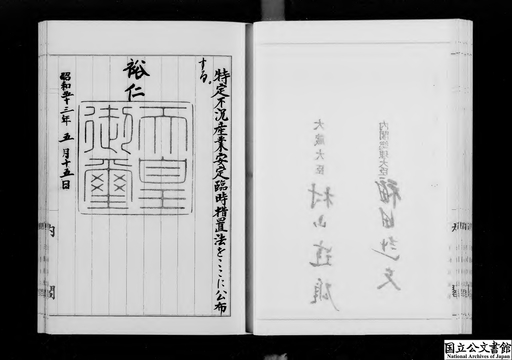 特定不況産業安定臨時措置法をここに公布
する。
裕仁
天皇
御璽
昭和五十三年五月十五日
内閣
内閣総理大臣 福田赳夫
大蔵大臣 村山達雄
国立公文書館
National Archives of Japan